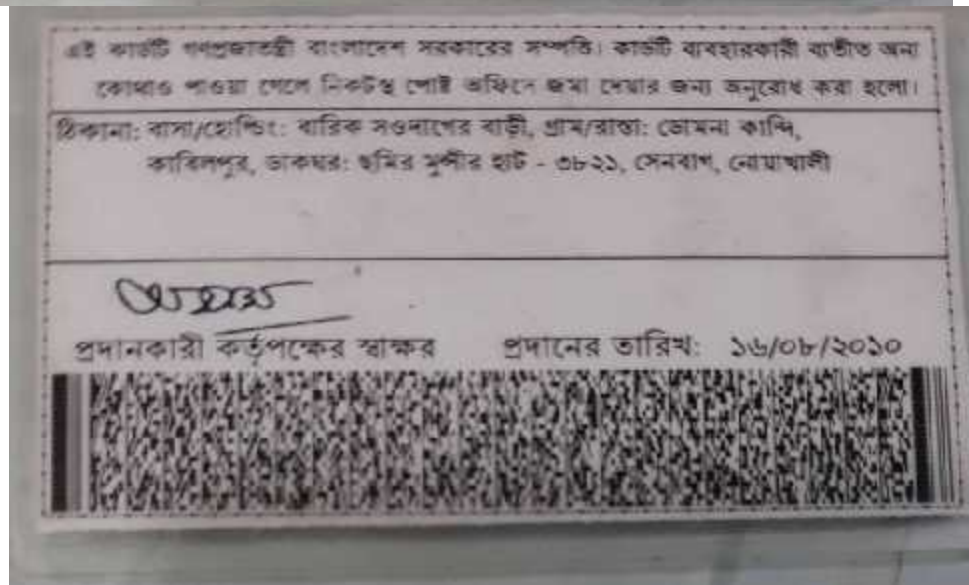 এই কার্ডটি গণপ্রজাতন্ত্রী বাংলাদেশ সরকারের সম্পত্তি। কার্ডটি ব্যবহারকারী ব্যতীত অন্য
কোথাও পাওয়া গেলে নিকটস্থ পোষ্ট অফিসে জমা দেয়ার জন্য অনুরোধ করা হলো।
ঠিকানা: বাসা/হোল্ডিং: বারিক সওদাগের বাড়ী, গ্রাম/রাস্তা: কান্দি,
কাবিলপুর, ডাকঘর: ছমির মুন্সীর হাট - ৩৮২১, সেনবাগ, নোয়াখালী
প্রদানকারী কর্তৃপক্ষের স্বাক্ষর প্রদানের তারিখ: ১৬/০৮/২০১০